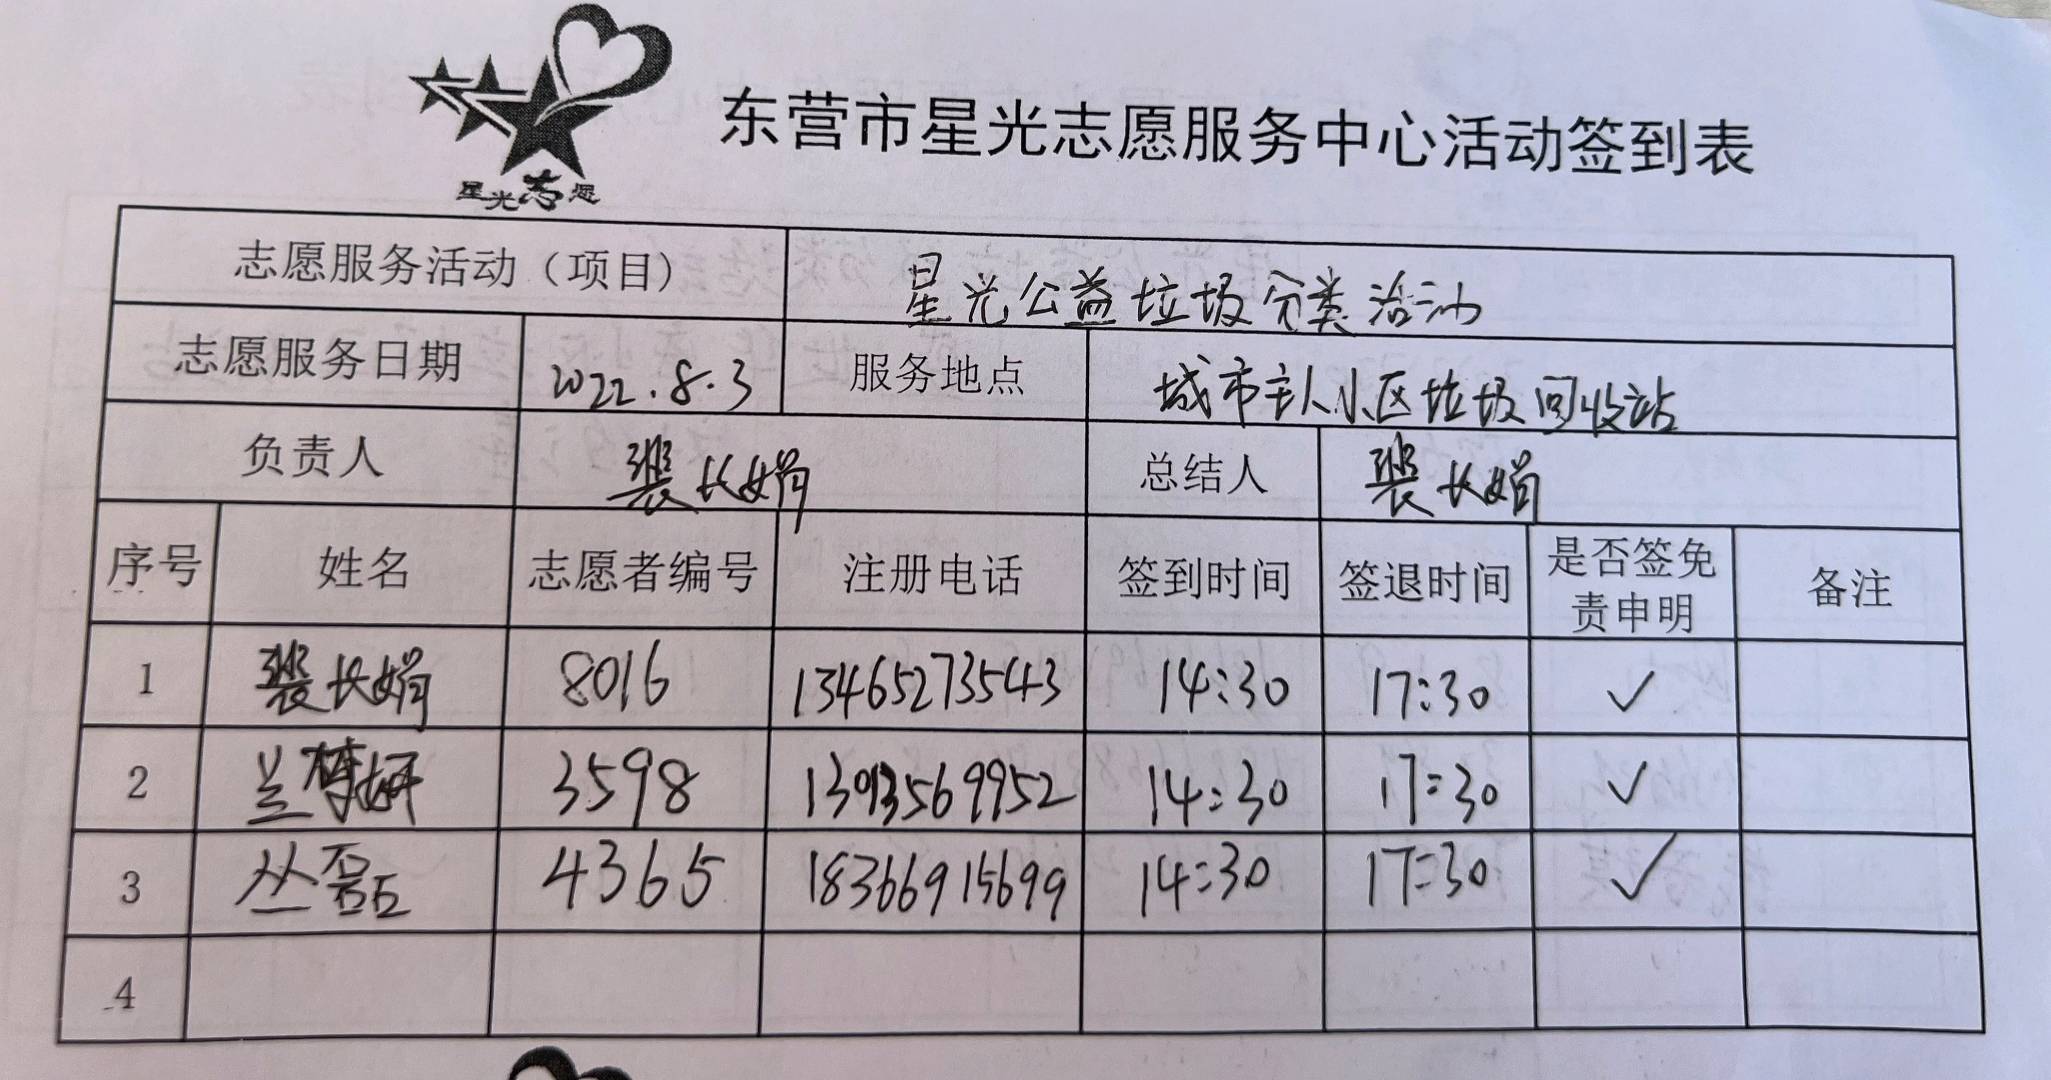 星光志愿
东营市星光志愿服务中心活动签到表
志愿服务活动（项目） 星光公益垃圾分类活动
志愿服务日期 2022.8.3 服务地点 城市主人小区垃圾回收站
负责人 裴长娟 总结人 裴长娟
序号 姓名 志愿者编号 注册电话 签到时间 签退时间 是否签免责申明 备注
1 裴长娟 8016 13465273543 14:30 17:30 ✓
2 兰 3598 14:30 17:30 ✓
3 丛磊 4365 18366915699 14:30 17:30 ✓
4